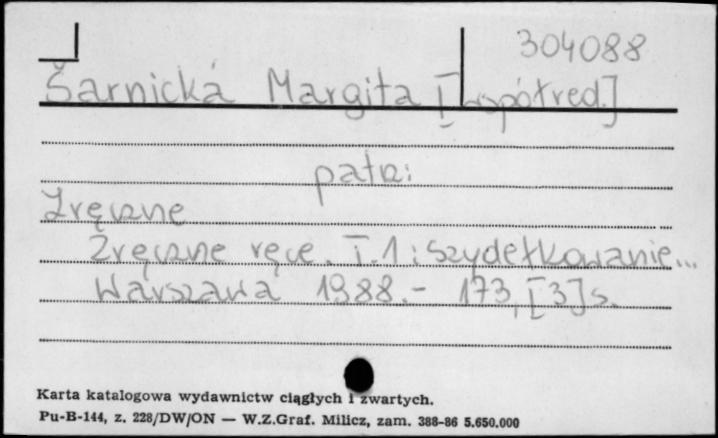 304088
Šarnická Margita [współred.]
patrz:
Zręczne
Zręczne ręce. T.1: Szydełkowanie...
Warszawa 1988.- 173, [3] s.
Karta katalogowa wydawnictw ciągłych i zwartych.
Pu-B-144, z. 228/DW/ON — W.Z.Graf. Milicz, zam. 388-86 5.650.000